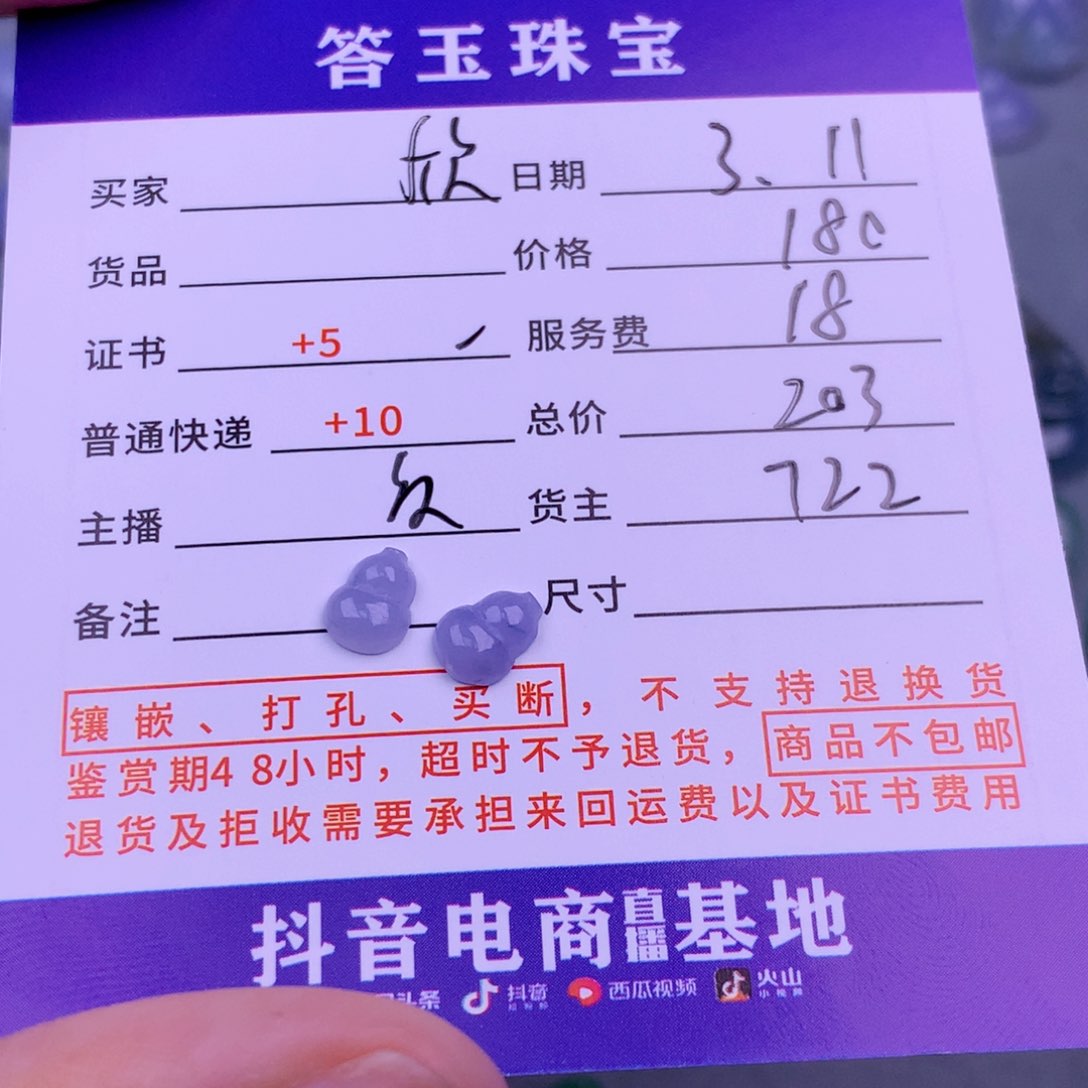 答玉珠宝
买家 欣 日期 3.11
货品 价格 180
证书 +5 服务费 18
普通快递 +10 总价 203
主播 货主 722
备注 尺寸
镶嵌、打孔、买断，不支持退换货
鉴赏期48小时，超时不予退货，商品不包邮
退货及拒收需要承担来回运费以及证书费用
抖音电商直播基地
头条 抖音 西瓜视频 火山
小视频